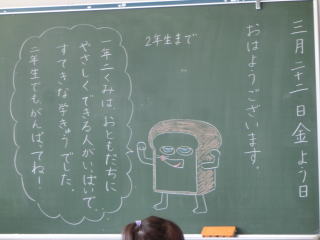 三月二十二日金よう日
おはようございます。
2年生まで
一年二くみは、おともだちに
やさしくできる人がいっぱいで、
すてきな学きゅうでした。
二年生でもがんばってね！